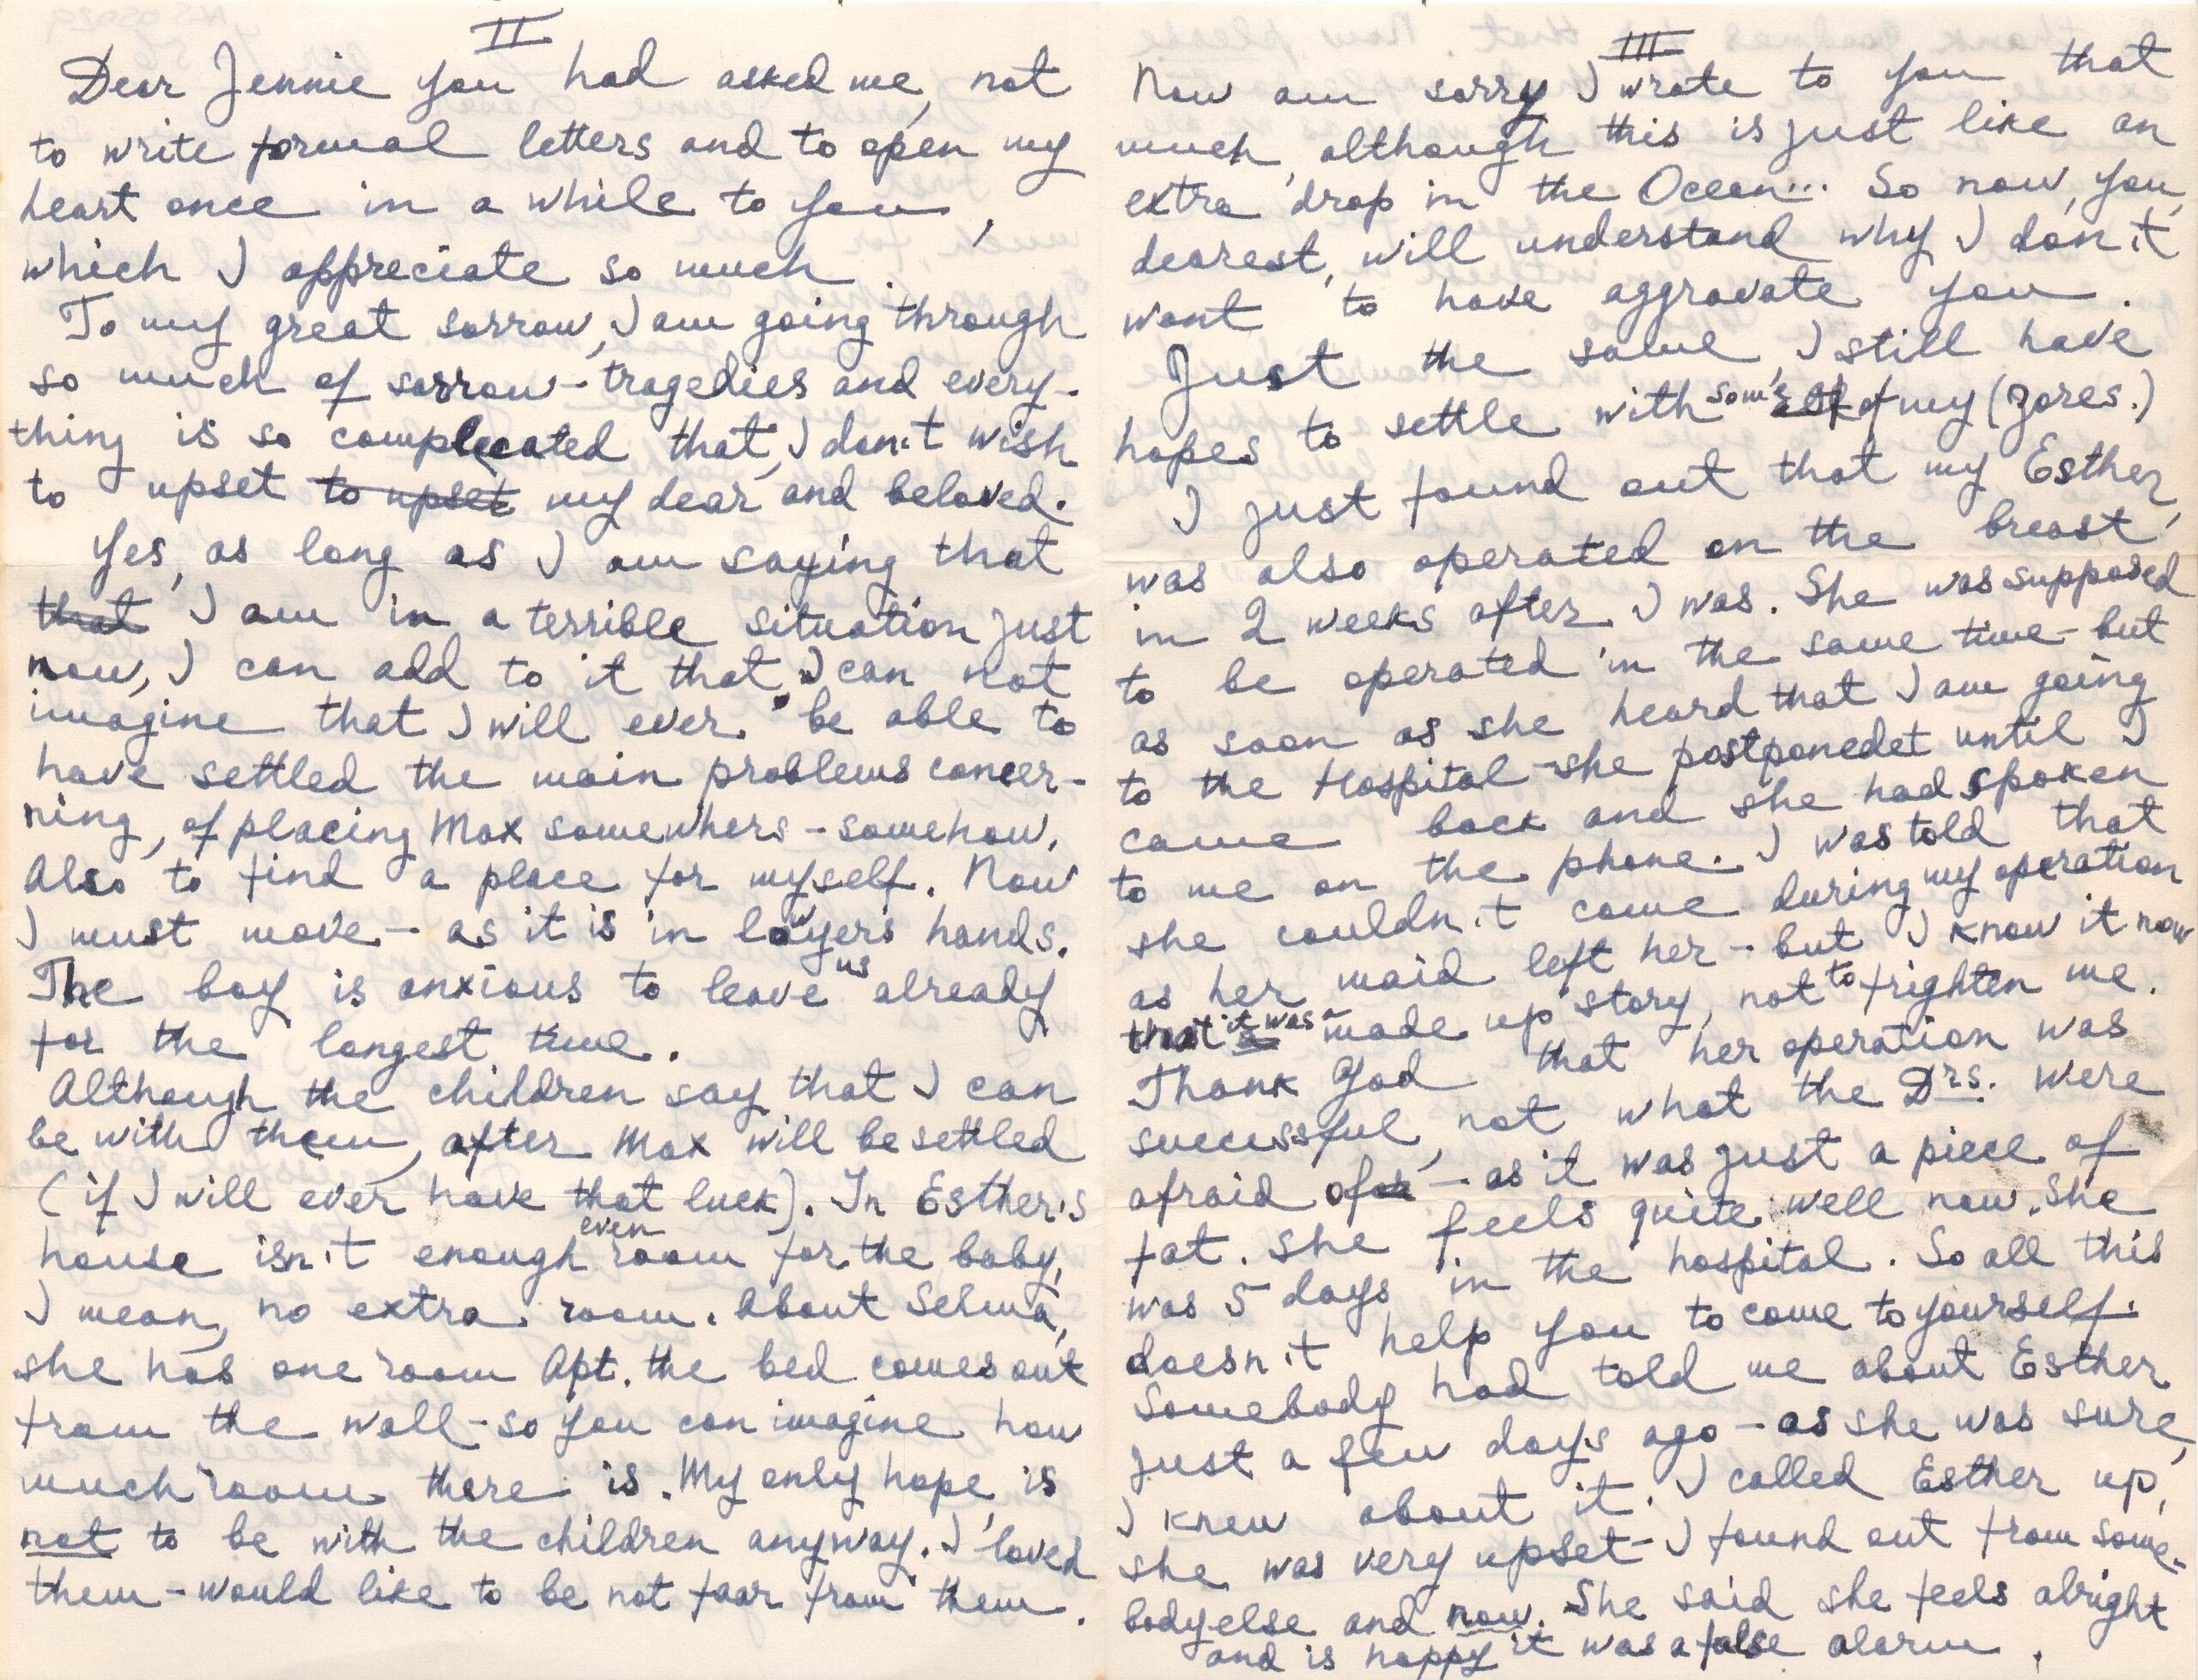 II
Dear Jennie you had asked me, not
to write formal letters and to open my
heart once in a while to you,
which I appreciate so much.
To my great sorrow, I am going through
so much of sorrow - tragedies and every-
thing is so complecated that, I don't wish
to upset to upset my dear and beloved.
Yes, as long as I am saying that
that I am in a terrible situation just
now, I can add to it that, I can not
imagine that I will ever be able to
have settled the main problems concer-
ning, of placing Max somewhers - somehow.
Also to find a place for myself. Now
I must move - as it is in lawyers hands.
The boy is anxious to leave us already
for the longest time.
Although the children say that I can
be with them, after Max will be settled
(if I will ever have that luck). In Esther's
house isn't enough even room for the baby,
I mean, no extra room. About Selma,
she has one room Apt. the bed comes out
from the wall - so you can imagine how
much room there is. My only hope, is
not to be with the children anyway. I loved
them - would like to be not faar from them.
III
Now am sorry I wrote to you that
much, although this is just like an
extra drop in the Ocean... So now, you,
dearest, will understand why I don't
want to have aggravate you.
Just the same, I still have
hopes to settle with some of my (Zores.)
I just found out that my Esther,
was also operated on the breast
in 2 weeks after I was. She was supposed
to be operated in the same time - but
as soon as she heard that I am going
to the Hospital - she postponedet until I
came back and she had spoken
to me on the phone. I was told that
she couldn't come during my operation
as her maid left her - but I know it now
that it was a made up story, not to frighten me.
Thank God that her operation was
successful, not what the Drs. were
afraid of - as it was just a piece of
fat. She feels quite well now. She
was 5 days in the hospital. So all this
doesn't help you to come to yourself.
Somebody had told me about Esther
just a few days ago - as she was sure,
I knew about it. I called Esther up,
she was very upset - I found out from some-
bodyelse and now. She said she feels alright
and is happy it was a false alarm.